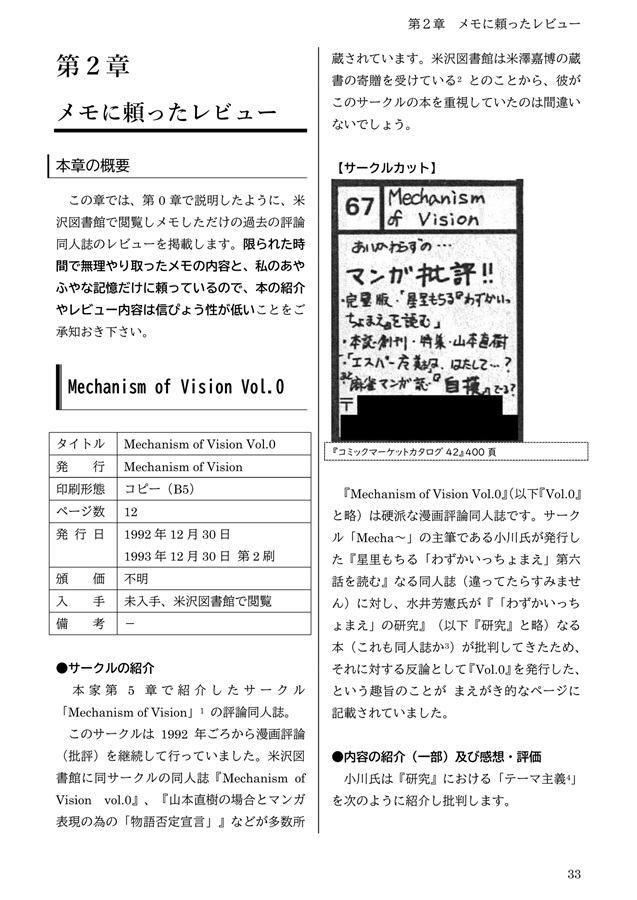 第２章　メモに頼ったレビュー
第２章
メモに頼ったレビュー
本章の概要
　この章では、第０章で説明したように、米
沢図書館で閲覧しメモしただけの過去の評論
同人誌のレビューを掲載します。限られた時
間で無理やり取ったメモの内容と、私のあや
ふやな記憶だけに頼っているので、本の紹介
やレビュー内容は信ぴょう性が低いことをご
承知おき下さい。
Mechanism of Vision Vol.0
タイトル　Mechanism of Vision Vol.0
発　行　Mechanism of Vision
印刷形態　コピー（B5）
ページ数　12
発行日　1992年12月30日
1993年12月30日 第2刷
頒　価　不明
入　手　未入手、米沢図書館で閲覧
備　考　－
●サークルの紹介
　本家第 5 章で紹介したサークル
「Mechanism of Vision」1 の評論同人誌。
　このサークルは 1992 年ごろから漫画評論
（批評）を継続して行っていました。米沢図
書館に同サークルの同人誌『Mechanism of
Vision　vol.0』、『山本直樹の場合とマンガ
表現の為の「物語否定宣言」』などが多数所
蔵されています。米沢図書館は米澤嘉博の蔵
書の寄贈を受けている2 とのことから、彼が
このサークルの本を重視していたのは間違い
ないでしょう。
【サークルカット】
67
Mechanism
of Vision
あいかわらずの…
マンガ批評!!
・完全版・「星里もちる『わずかいっ
ちょまえ』を読む」
・本誌・創刊・特集・山本直樹
・「エスパー魔美は、はたして…？
麻雀マンガ誌・『自摸』でる？
〒
『コミックマーケットカタログ 42』400 頁
　『Mechanism of Vision Vol.0』（以下『Vol.0』
と略）は硬派な漫画評論同人誌です。サーク
ル「Mecha～」の主筆である小川氏が発行し
た『星里もちる「わずかいっちょまえ」第六
話を読む』なる同人誌（違ってたらすみませ
ん）に対し、水井芳憲氏が『「わずかいっち
ょまえ」の研究』（以下『研究』と略）なる
本（これも同人誌か3）が批判してきたため、
それに対する反論として『Vol.0』を発行した、
という趣旨のことが まえがき的なページに
記載されていました。
●内容の紹介（一部）及び感想・評価
　小川氏は『研究』における「テーマ主義4」
を次のように紹介し批判します。
33